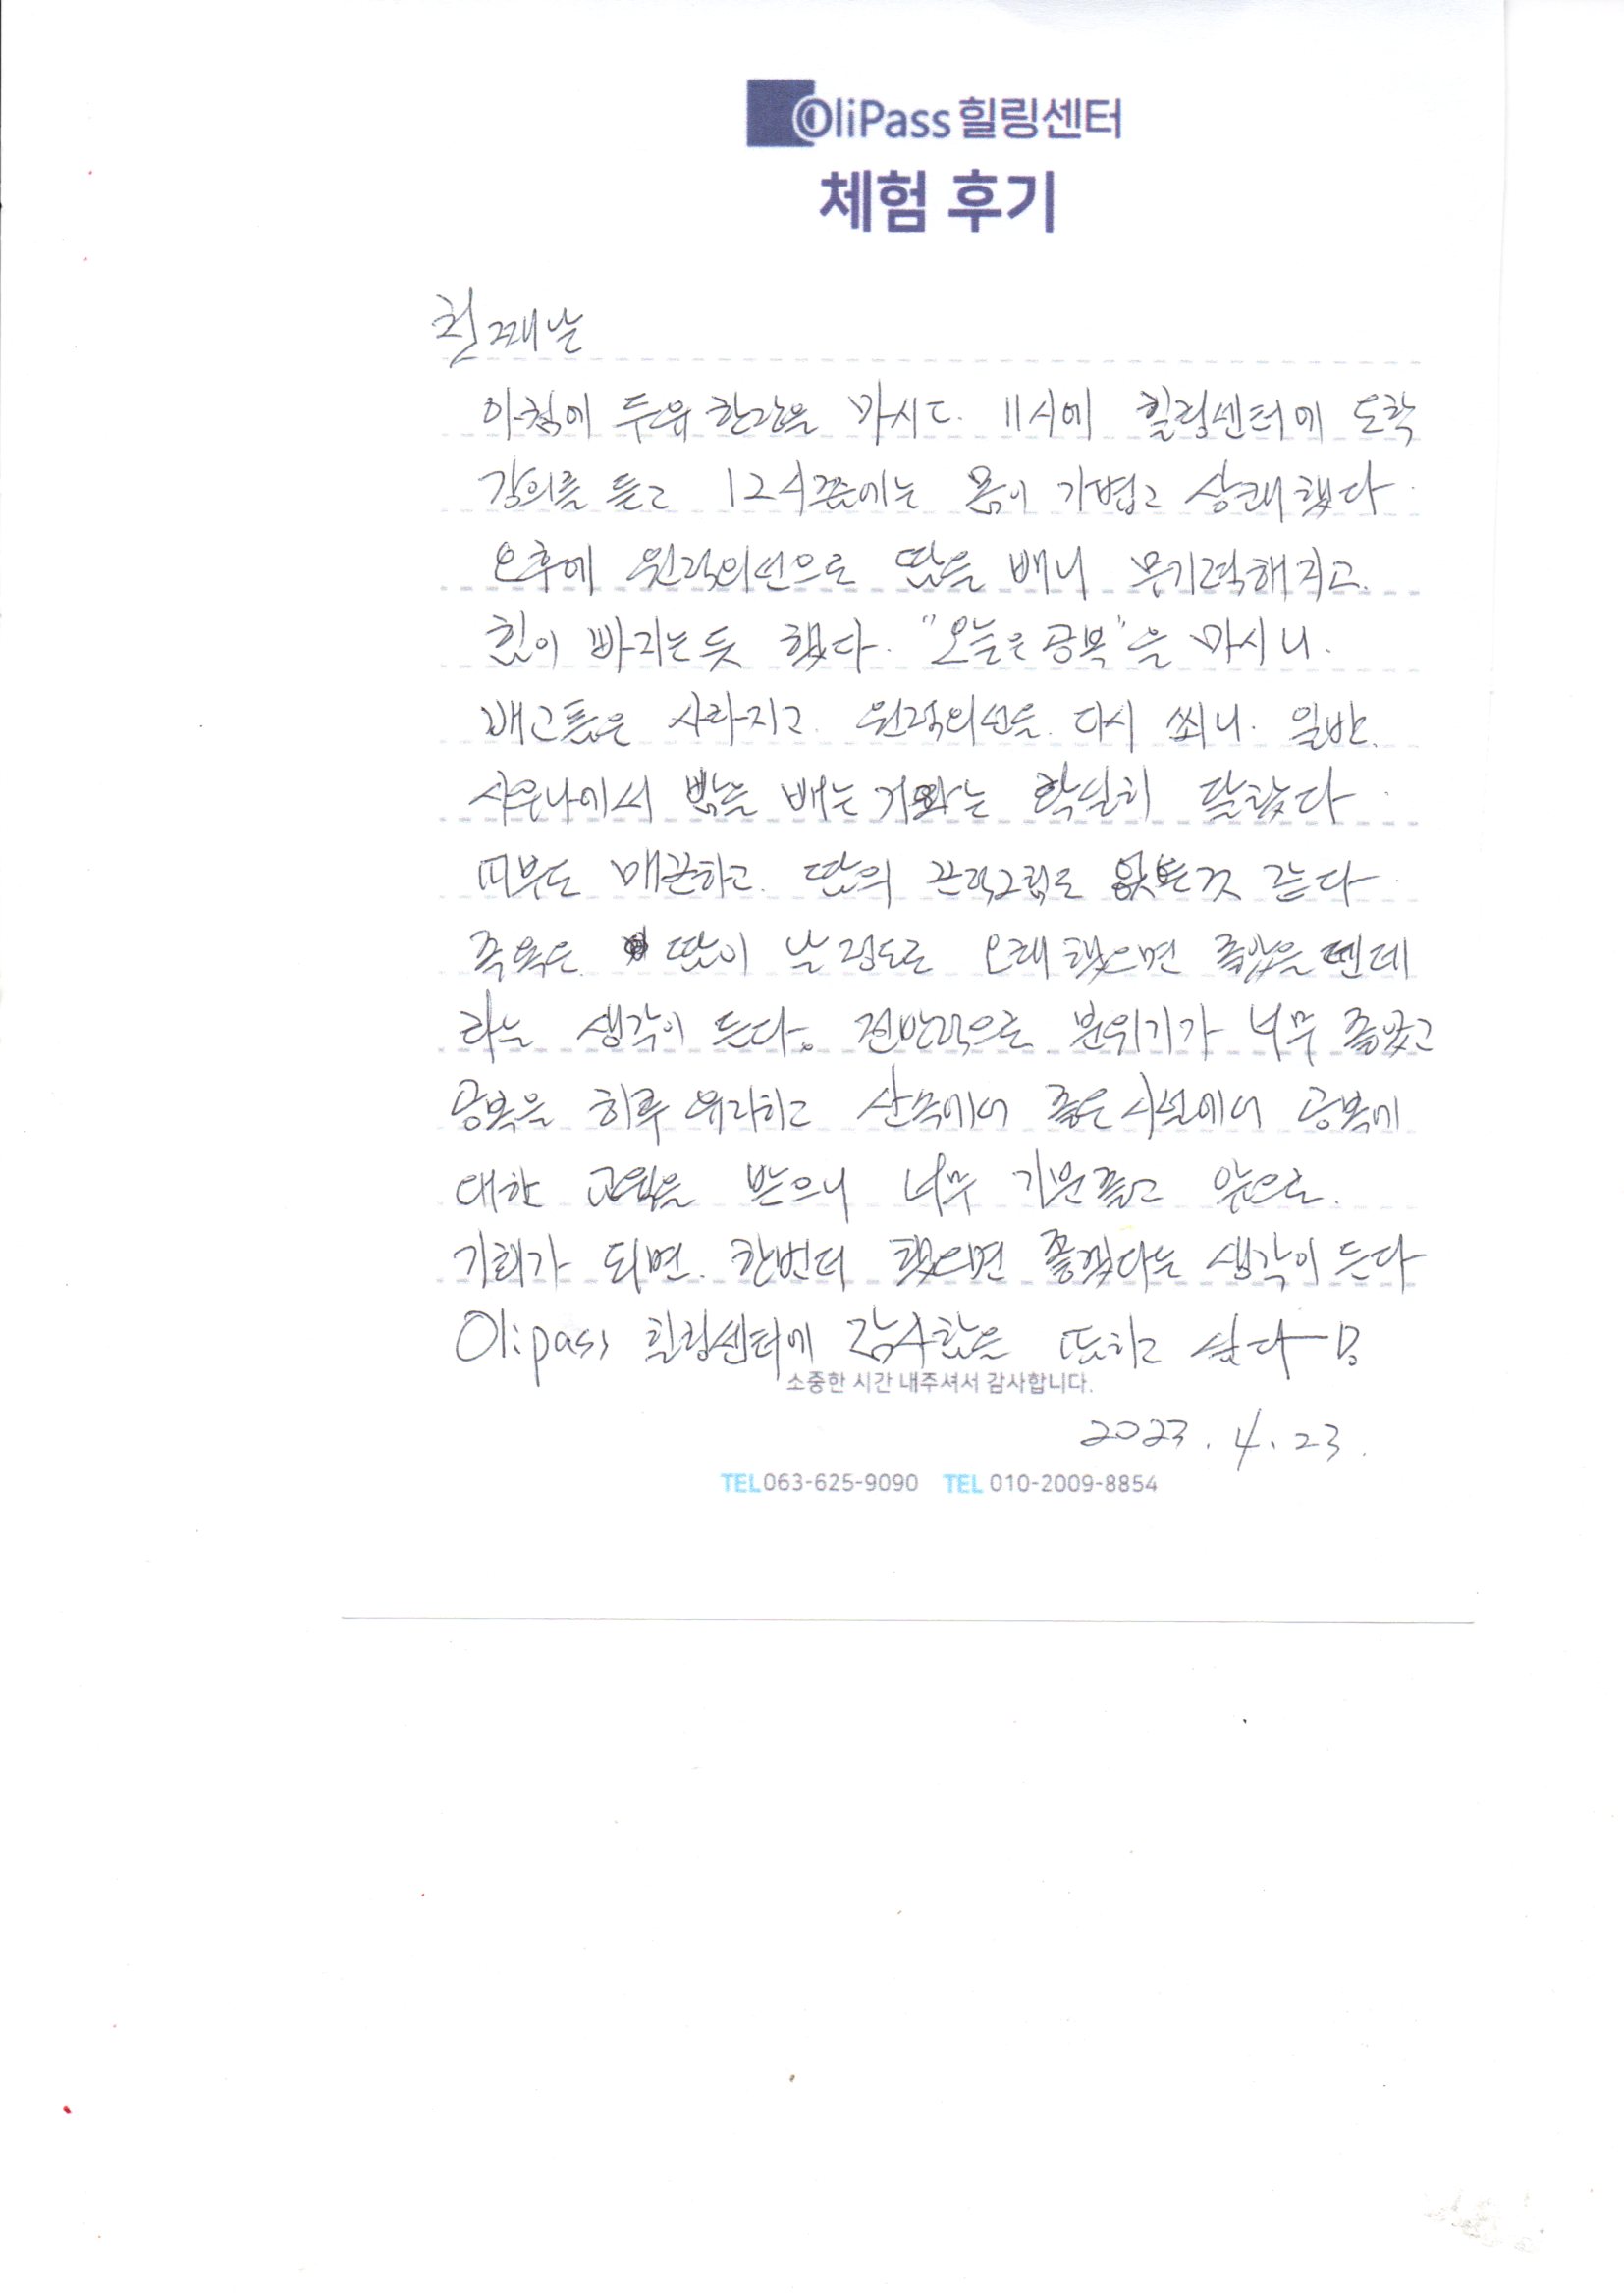 OliPass 힐링센터
체험 후기
첫째날
아침에 두유 한잔을 마시고. 11시에 힐링센터에 도착
강의를 듣고 12시쯤에는 몸이 가볍고 상쾌했다.
오후에 원적외선으로 땀을 빼니 무기력해지고.
힘이 빠지는 듯 했다. "오늘은 공복"을 마시니.
배고픔은 사라지고. 원적외선을 다시 쐬니. 일반.
사우나에서 땀을 빼는 거와는 확실히 달랐다.
피부도 매끈하고. 땀의 끈적그림도 없는것 같다.
족욕은 땀이 날 정도로 오래 했으면 좋았을 텐데
라는 생각이 든다. 전반적으로 분위기가 너무 좋았고
공복을 하루 유지하고 산속에서 좋은 시설에서 공복에
대한 교육을 받으니 너무 기분좋고 앞으로.
기회가 되면. 한번더 했으면 좋겠다는 생각이 든다
Olipass 힐링센터에 감사함을 또하고 싶다
소중한 시간 내주셔서 감사합니다.
2023. 4. 23.
TEL 063-625-9090 TEL 010-2009-8854